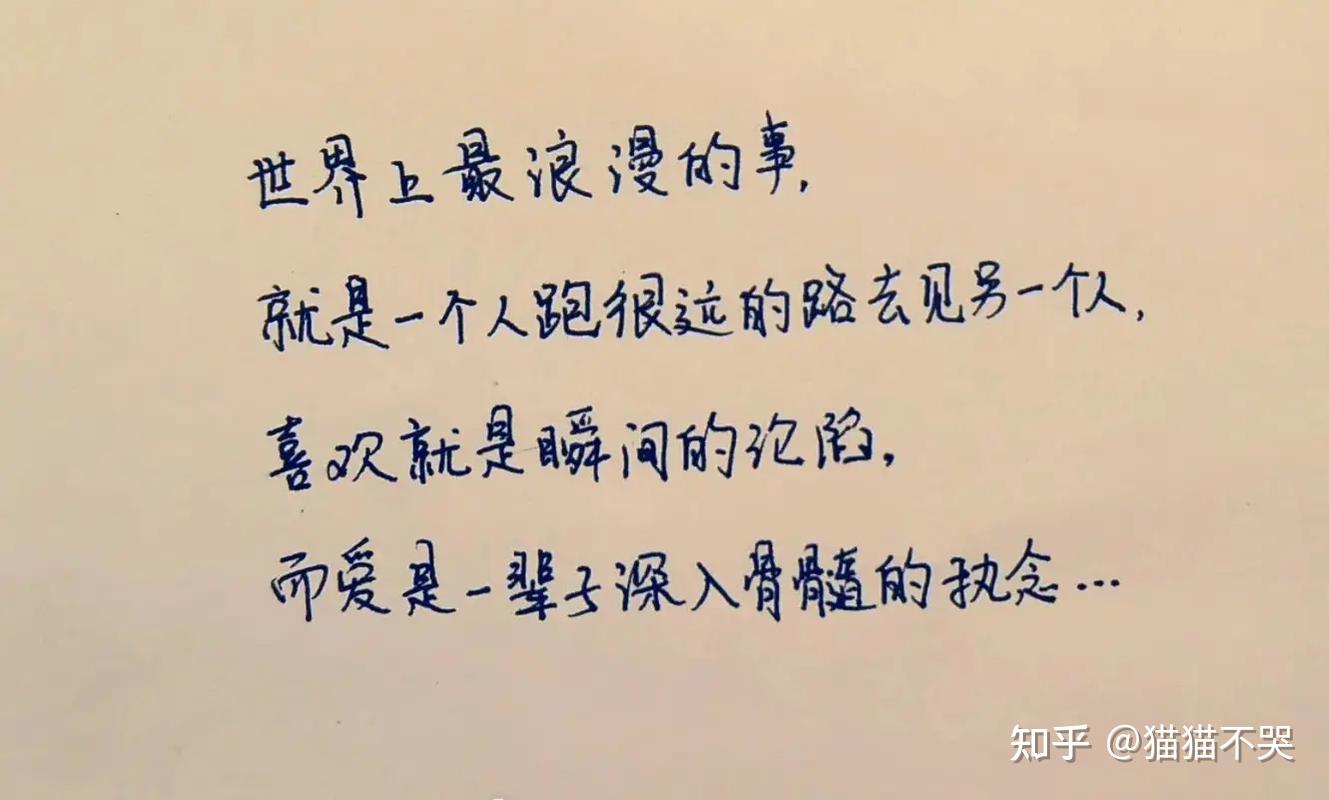 世界上最浪漫的事,
就是一个人跑很远的路去见另一个人,
喜欢就是瞬间的沦陷,
而爱是一辈子深入骨髓的执念...
知乎 @猫猫不哭